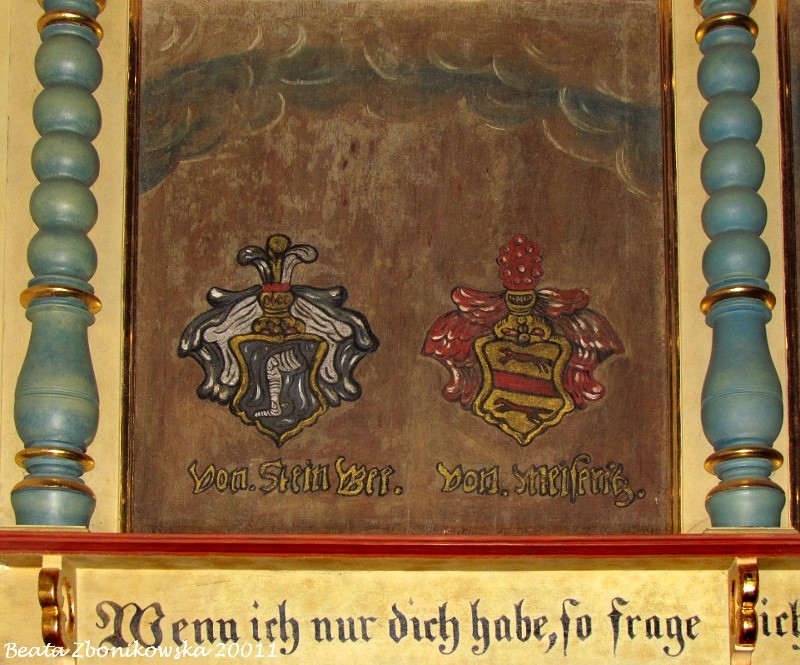 von. Stein Wer. von. Meiseritz.
Wenn ich nur dich habe, so frage ich
Beata Zbonikowska 20011